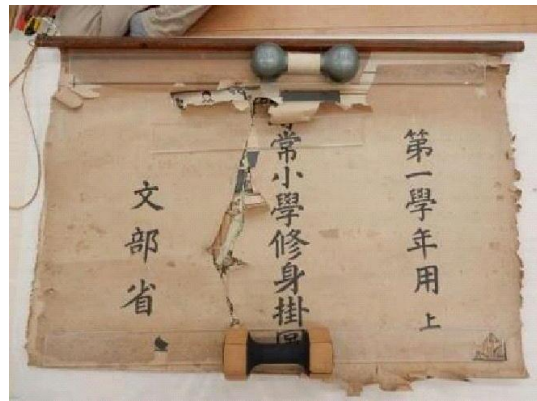 第一學年用 上
常小學修身掛圖
文部省